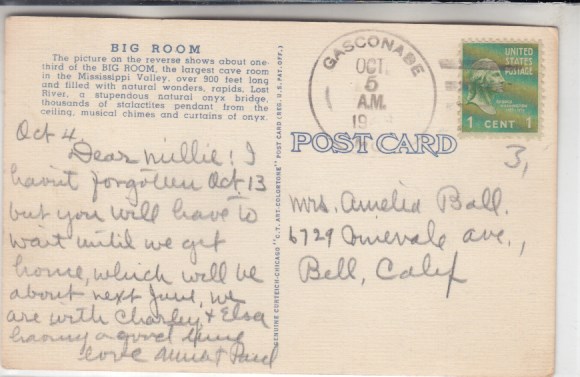 BIG ROOM
The picture on the reverse shows about one-
third of the BIG ROOM, the largest cave room
in the Mississippi Valley, over 900 feet long
and filled with natural wonders, rapids, Lost
River, a stupendous natural onyx bridge,
thousands of stalactites pendant from the
ceiling, musical chimes and curtains of onyx.
Oct 4
Dear Millie! I
havint forgotten Oct. 13
but you will have to
wait until we get
home, which will be
about next June, we
are with Charley & Elsa
having a good time
love & Paul
GENUINE CURTEICH-CHICAGO "C.T. ART-COLORTONE" POST CARD (REG. U.S. PAT. OFF.)
GASCONADE
OCT.
5
A.M.
19
UNITED
STATES
POSTAGE
1 CENT 1
POST CARD
3,
Mrs. Amelia Ball.
6729 ave.,
Bell, Calif